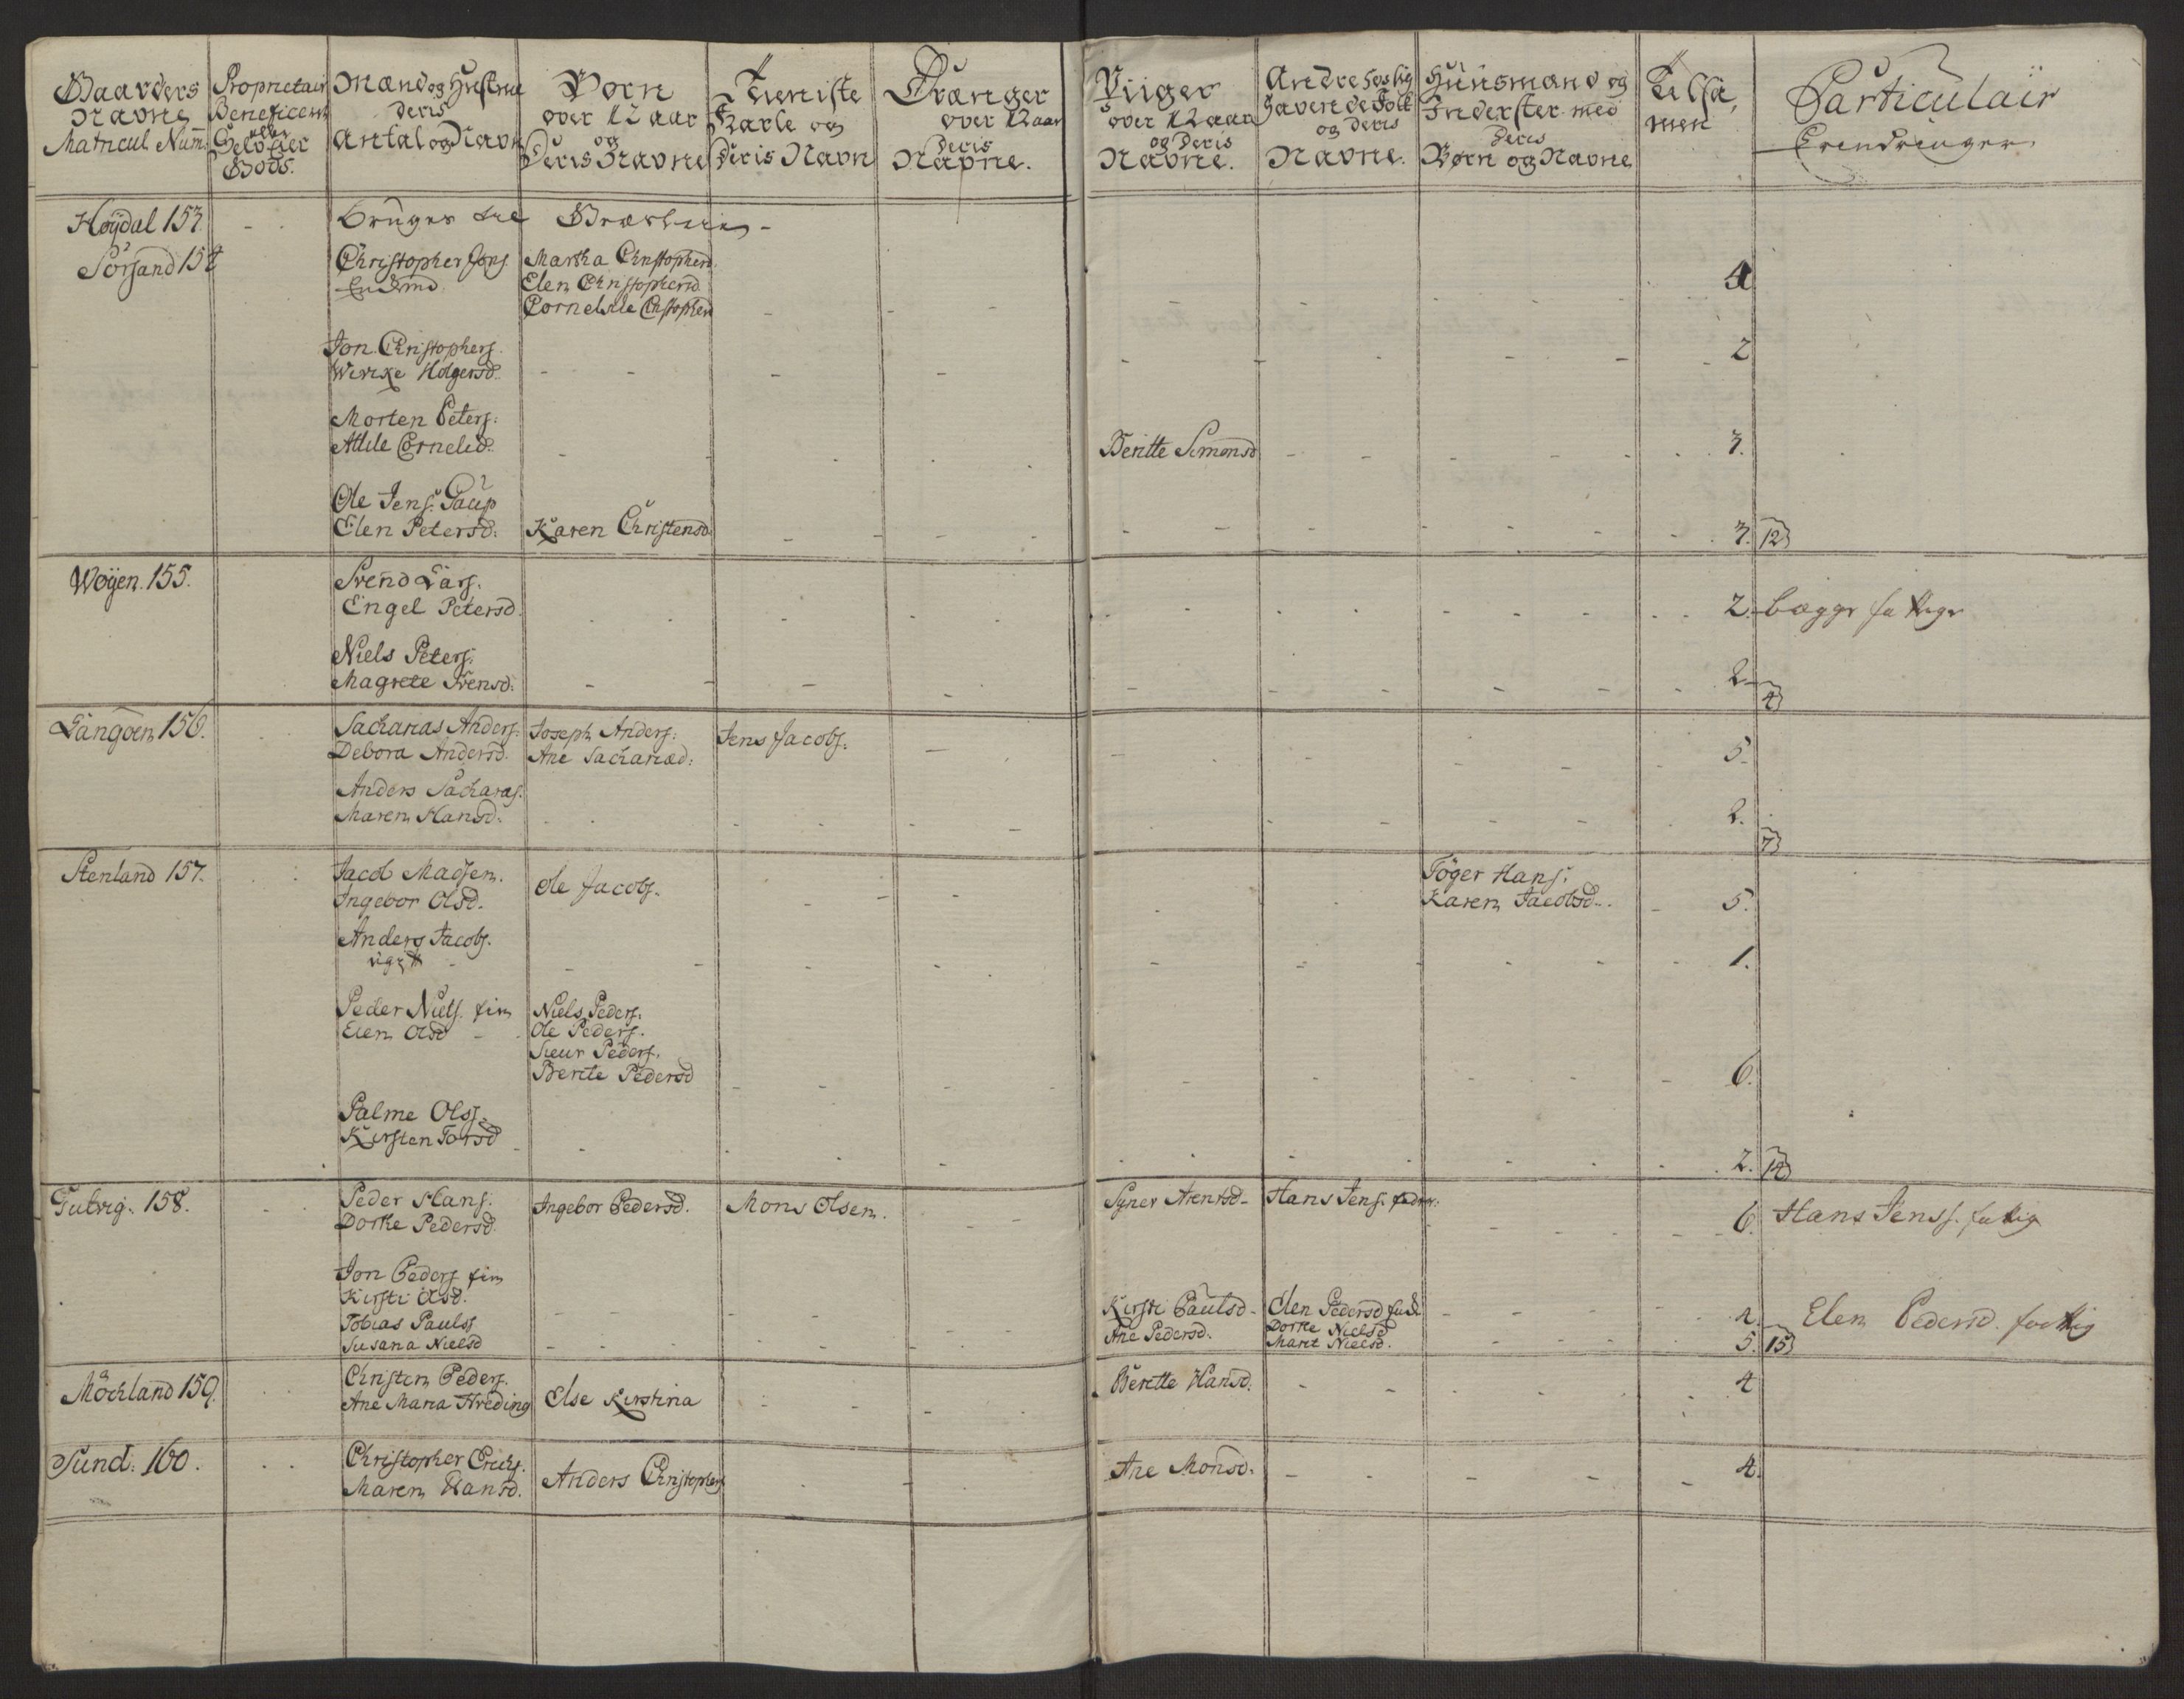 Gaarders Navne Matricul Num:
Proprietair Beneficeret eller Selveier Gods.
Mænd og Hustrue deris Antal og Navn
Børn over 12 aar og Deris Navne
Tieniste Karle og Deris Navn
Drænger over 12 aar Deris Navne.
Piiger over 12 aar og Deris Navne.
Andre Løslig havende Folk og deris Navne.
Huusmænd og Inderster med Deris Børn og Navne
Tilsa, men
Particulair Erendringer
Høÿdal 153.
bruges til
Sørsand 154
Christopher Jons. Enckmd
Martha Christophersd.
Elen Christophersd
Cornelille Christophersd
4
Jon Christophers.
Wiveke Holgersd.
2
Morten Peters:
Attlile Cornelid:
Beritte Simonsd
3.
Ole Jens. Paup
Elen Petersd:
Karen Christensd.
3. 12
Woÿen. 155.
Svend Lars.
Engel Petersd.
2. begge fattige
Niels Peters:
Magrete Svensd:
2 4
Langøen 156.
Sacharias Anders:
Debora Andersd.
Joseph Anders:
Ane Sachariæd:
Jens Jacobs:
5.
Anders Sacharas.
Maren Hansd.
2. 7
Stenland 157.
Jacob Madsen.
Ingebor Olsd.
Ole Jacobs.
Töger Hans:
Karen Jacobsd.
5.
Anders Jacobs.
ugift
1.
Peder Niels. fin
Elen Olsd
Niels Peders:
Ole Peders.
Sieur Peders.
Berete Pedersd
6.
Palme Olss.
Kirsten Torsd
2. 14
Gutvig. 158.
Peder Hans:
Dorthe Pedersd.
Ingebor Pedersd.
Mons Olsen.
Syner Arentsd
Hans Jens. fader:
6. Hans Jenss. fattig
Jon Peders fin
Kirsti Olsd.
Kirsti Paulsd
Elen Pedersd fin
4. Elen Pedersd. fattig
Tobias Paulss
Susana Nielsd
Ane Pedersd.
Dorthe Nielsd
Marit Nielsd.
5. 15
Möchland 159.
Christen Peders.
Ane Maria Hreding
Else Kirstina
Beritte Hansd.
4
Sund: 160.
Christopher Erichs.
Maren Hansd.
Anders Christophers
Ane Monsd.
4.